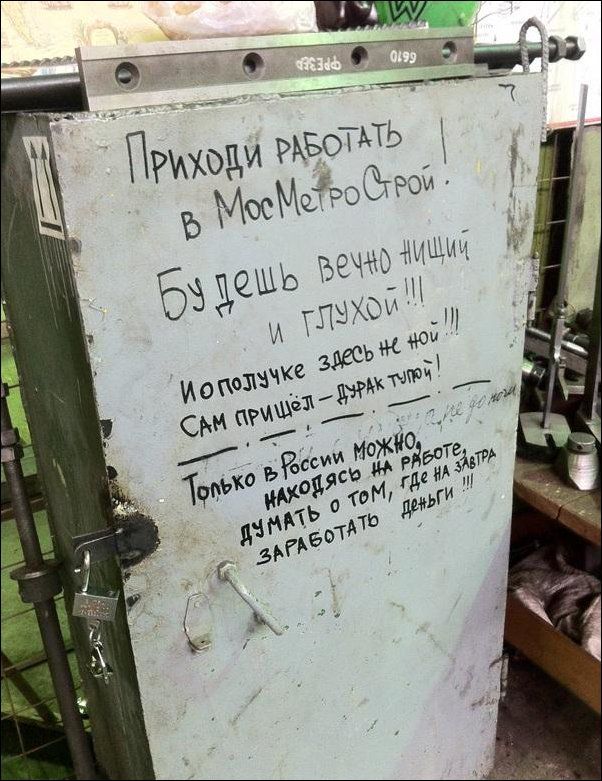 6610 ФРЕЗЕР
Приходи работать
в МосМетроСтрой!
Будешь вечно нищий
и глухой!!!
И о получке здесь не ной!!!
Сам пришёл – дурак тупой!
Только в России можно,
находясь на работе,
думать о том, где на завтра
заработать деньги!!!